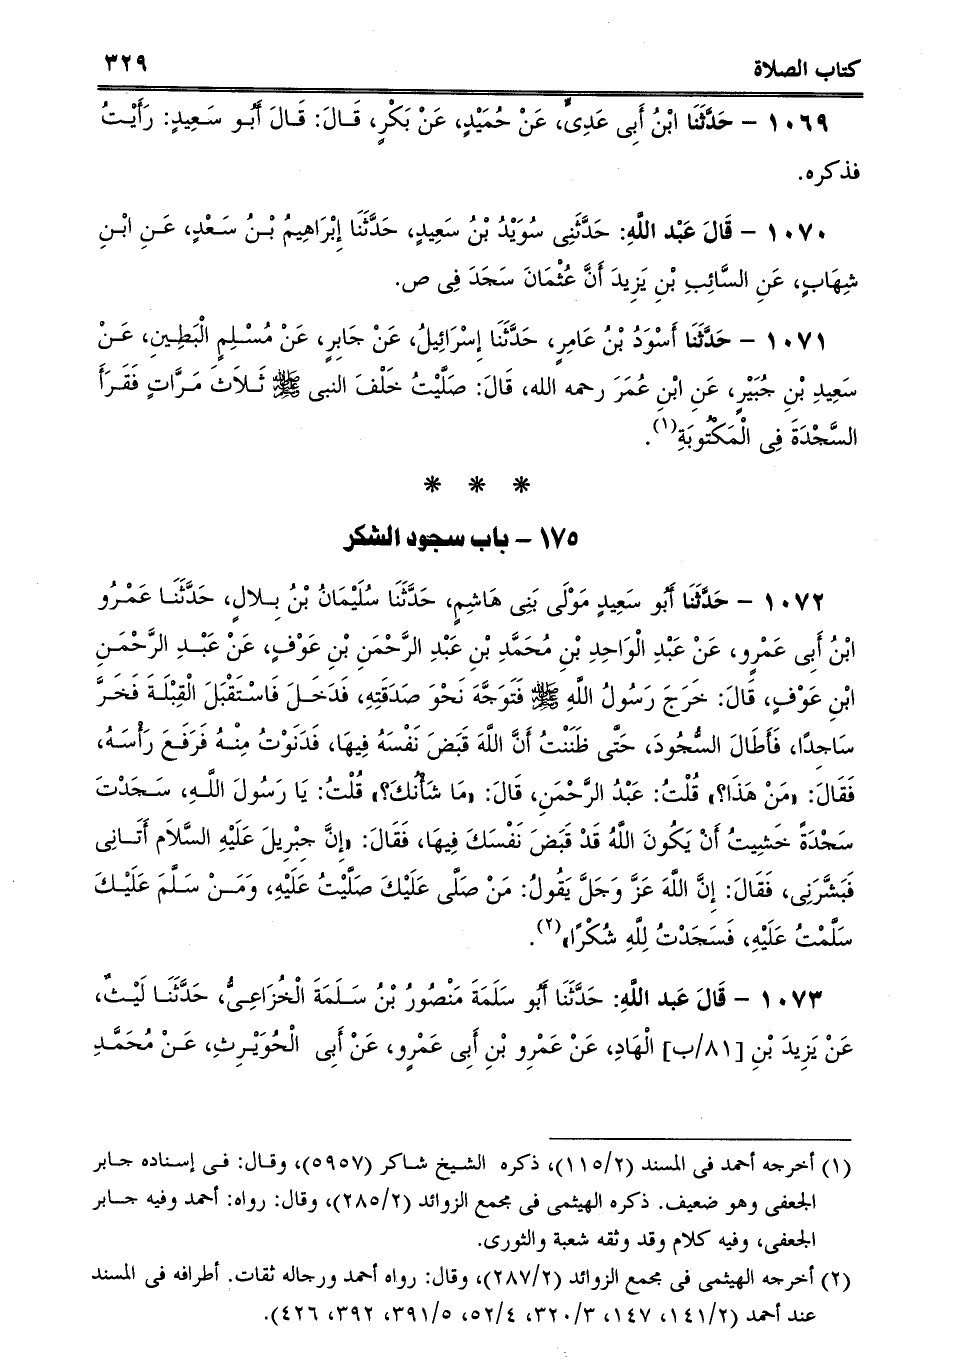 كتاب الصلاة ٣٢٩
١٠٦٩ – حَدَّثَنَا ابْنُ أَبِى عَدِىٍّ، عَنْ حُمَيْدٍ، عَنْ بَكْرٍ، قَالَ: قَالَ أَبُو سَعِيدٍ: رَأَيْتُ
فذكره.
١٠٧٠ – قَالَ عَبْد اللَّهِ: حَدَّثَنِى سُوَيْدُ بْنُ سَعِيدٍ، حَدَّثَنَا إِبْرَاهِيمُ بْنُ سَعْدٍ، عَنِ ابْنِ
شِهَابٍ، عَنِ السَّائِبِ بْنِ يَزِيدَ أَنَّ عُثْمَانَ سَجَدَ فِى ص.
١٠٧١ – حَدَّثَنَا أَسْوَدُ بْنُ عَامِرٍ، حَدَّثَنَا إِسْرَائِيلُ، عَنْ جَابِرٍ، عَنْ مُسْلِمٍ الْبَطِينِ، عَنْ
سَعِيدِ بْنِ جُبَيْرٍ، عَنِ ابْنِ عُمَرَ رحمه الله، قَالَ: صَلَّيْتُ خَلْفَ النبى ﷺ ثَلاَثَ مَرَّاتٍ فَقَرَأَ
السَّجْدَةَ فِى الْمَكْتُوبَةِ(١).
* * *
١٧٥ – باب سجود الشكر
١٠٧٢ – حَدَّثَنَا أَبُو سَعِيدٍ مَوْلَى بَنِى هَاشِمٍ، حَدَّثَنَا سُلَيْمَانُ بْنُ بِلالٍ، حَدَّثَنَا عَمْرُو
ابْنُ أَبِى عَمْرٍو، عَنْ عَبْدِ الْوَاحِدِ بْنِ مُحَمَّدِ بْنِ عَبْدِ الرَّحْمَنِ بْنِ عَوْفٍ، عَنْ عَبْدِ الرَّحْمَنِ
ابْنِ عَوْفٍ، قَالَ: خَرَجَ رَسُولُ اللَّهِ ﷺ فَتَوَجَّهَ نَحْوَ صَدَقَتِهِ، فَدَخَلَ فَاسْتَقْبَلَ الْقِبْلَةَ فَخَرَّ
سَاجِدًا، فَأَطَالَ السُّجُودَ، حَتَّى ظَنَنْتُ أَنَّ اللَّهَ قَبَضَ نَفْسَهُ فِيهَا، فَدَنَوْتُ مِنْهُ فَرَفَعَ رَأْسَهُ،
فَقَالَ: «مَنْ هَذَا؟» قُلْتُ: عَبْدُ الرَّحْمَنِ، قَالَ: «مَا شَأْنُكَ؟» قُلْتُ: يَا رَسُولَ اللَّهِ، سَجَدْتَ
سَجْدَةً خَشِيتُ أَنْ يَكُونَ اللَّهُ قَدْ قَبَضَ نَفْسَكَ فِيهَا، فَقَالَ: «إِنَّ جِبْرِيلَ عَلَيْهِ السَّلاَم أَتَانِى
فَبَشَّرَنِى، فَقَالَ: إِنَّ اللَّهَ عَزَّ وَجَلَّ يَقُولُ: مَنْ صَلَّى عَلَيْكَ صَلَّيْتُ عَلَيْهِ، وَمَنْ سَلَّمَ عَلَيْكَ
سَلَّمْتُ عَلَيْهِ، فَسَجَدْتُ لِلَّهِ شُكْرًا»(٢).
١٠٧٣ – قَالَ عَبد اللَّهِ: حَدَّثَنَا أَبُو سَلَمَةَ مَنْصُورُ بْنُ سَلَمَةَ الْخُزَاعِىُّ، حَدَّثَنَا لَيْثٌ،
عَنْ يَزِيدَ بْنِ [٨١/ب] الْهَادِ، عَنْ عَمْرِو بْنِ أَبِى عَمْرٍو، عَنْ أَبِى الْحُوَيْرِثِ، عَنْ مُحَمَّدِ
(١) أخرجه أحمد فى المسند (١١٥/٢)، ذكره الشيخ شاكر (٥٩٥٧)، وقال: فى إسناده جابر
الجعفى وهو ضعيف. ذكره الهيثمى فى مجمع الزوائد (٢٨٥/٢)، وقال: رواه: أحمد وفيه جابر
الجعفى، وفيه كلام وقد وثقه شعبة والثورى.
(٢) أخرجه الهيثمى فى مجمع الزوائد (٢٨٧/٢)، وقال: رواه أحمد ورجاله ثقات. أطرافه فى المسند
عند أحمد (١٤١/٢، ١٤٧، ٣٢٠/٣، ٥٢/٤، ٣٩١/٥، ٣٩٢، ٤٢٦).